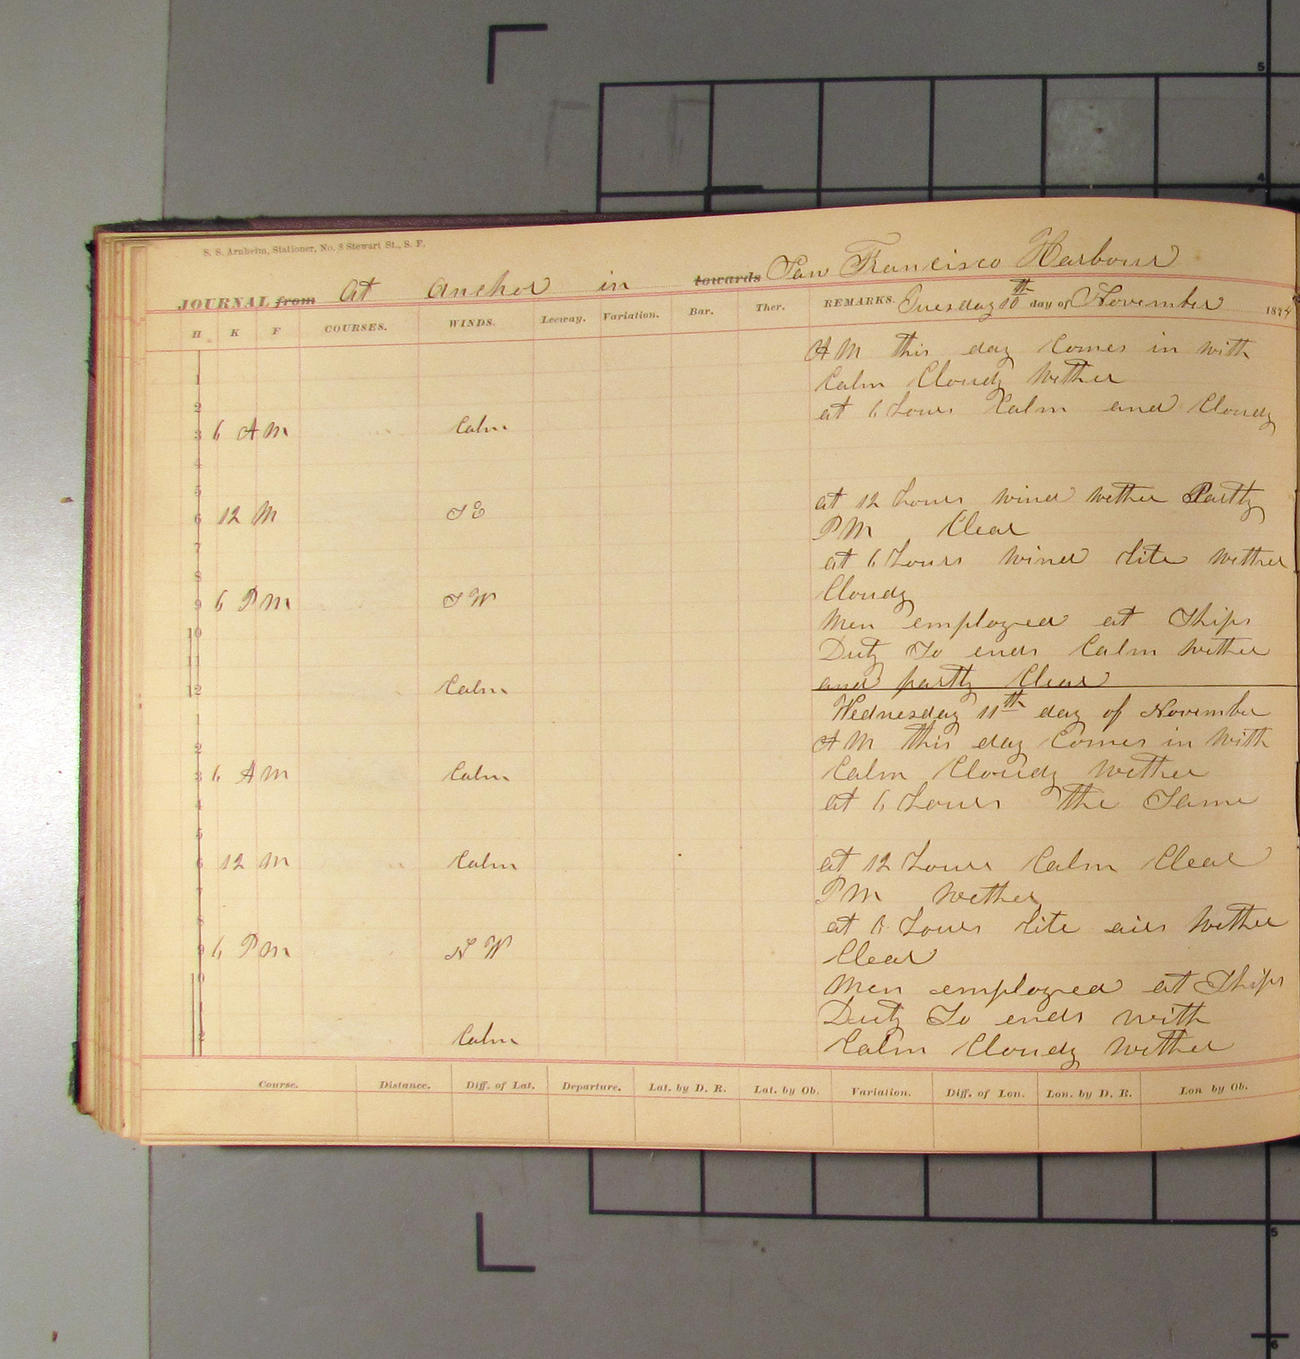 S. S. Arnheim, Stationer, No. 8 Stewart St., S. F.
JOURNAL from At Anchor in towards San Francisco Harbour
H K F COURSES. WINDS. Leeway. Variation. Bar. Ther. REMARKS. Tuesday 10th day of November 187
A M this day Comes in with
1
Calm Cloudy Wether
2
at 6 hours Calm and Cloudy
3 6 A M Calm
4
5
at 12 hours wind wether Partly
6 12 M S E
P M Clear
7
at 6 hours wind lite wether
8
Cloudy
9 6 P M S W
Men employed at Ships
10
Duty So ends Calm wether
11
and partly Clear
12 Calm
Wednesday 11th day of November
1
A M this day Comes in With
2
Calm Cloudy wether
3 6 A M Calm
at 6 hours the Same
4
5
at 12 hours Calm Clear
6 12 M Calm
P M wether
7
at 6 hours lite airs wether
8
Clear
9 6 P M N W
Men employed at Ships
10
Duty So ends with
Calm Cloudy wether
2 Calm
Course. Distance. Diff. of Lat. Departure. Lat. by D. R. Lat. by Ob. Variation. Diff. of Lon. Lon. by D. R. Lon by Ob.
5
4
5
6